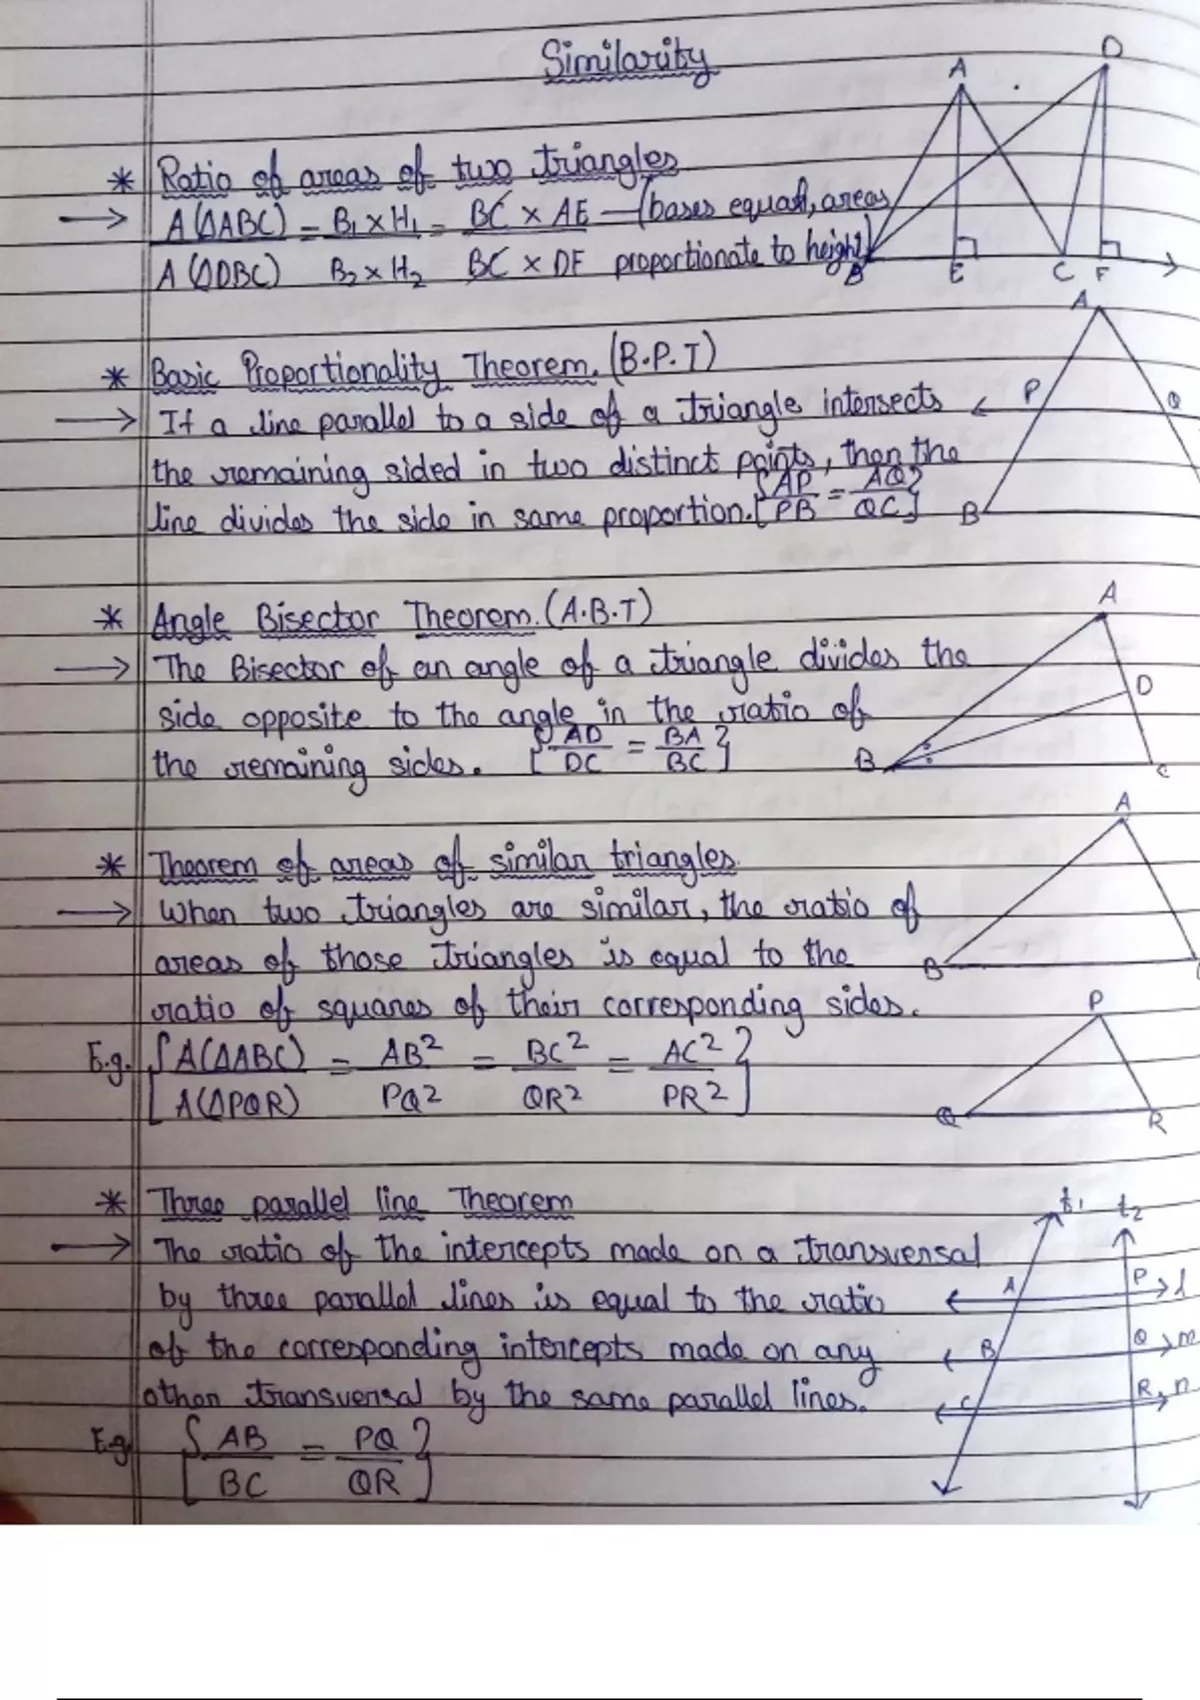 Similarity
* Ratio of areas of two triangles
→ A(△ABC) = B₁ × H₁ = BC × AE — (bases equal, areas
A(△DBC) B₂ × H₂ BC × DF proportionate to height)
A D
B E C F
* Basic Proportionality Theorem. (B.P.T)
→ If a line parallel to a side of a triangle intersects
the remaining sided in two distinct points, then the
line divides the side in same proportion. [AP/PB = AQ/QC]
A
P Q
B
* Angle Bisector Theorem. (A.B.T)
→ The Bisector of an angle of a triangle divides the
side opposite to the angle in the ratio of
the remaining sides. [AD/DC = BA/BC]
A
D
B C
* Theorem of areas of similar triangles.
→ When two triangles are similar, the ratio of
areas of those triangles is equal to the
ratio of squares of their corresponding sides.
E.g. [A(△ABC) = AB² = BC² = AC²
A(△PQR) PQ² QR² PR²]
A
B
P
Q R
* Three parallel line Theorem
→ The ratio of the intercepts made on a transversal
by three parallel lines is equal to the ratio
of the corresponding intercepts made on any
other transversal by the same parallel lines.
E.g. [AB = PQ
BC QR]
t₁ t₂
A P l
B Q m
C R n